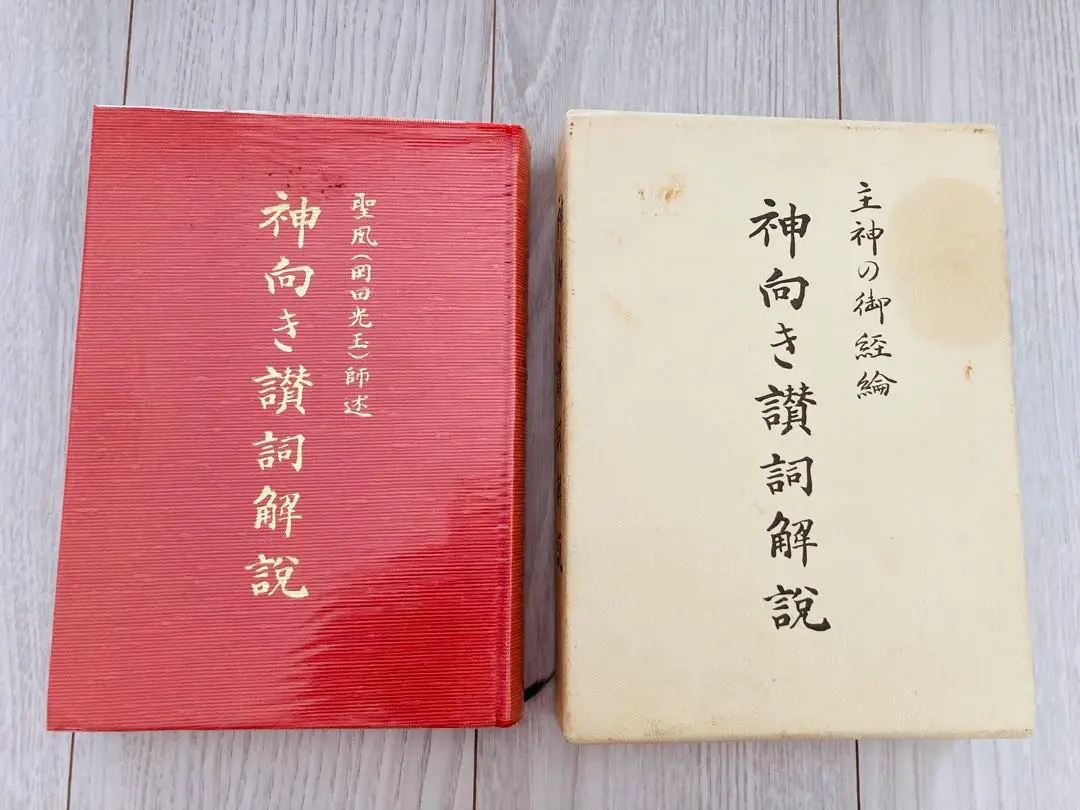 聖凰(岡田光玉)師述
神向き讃詞解説
主神の御経綸
神向き讃詞解説